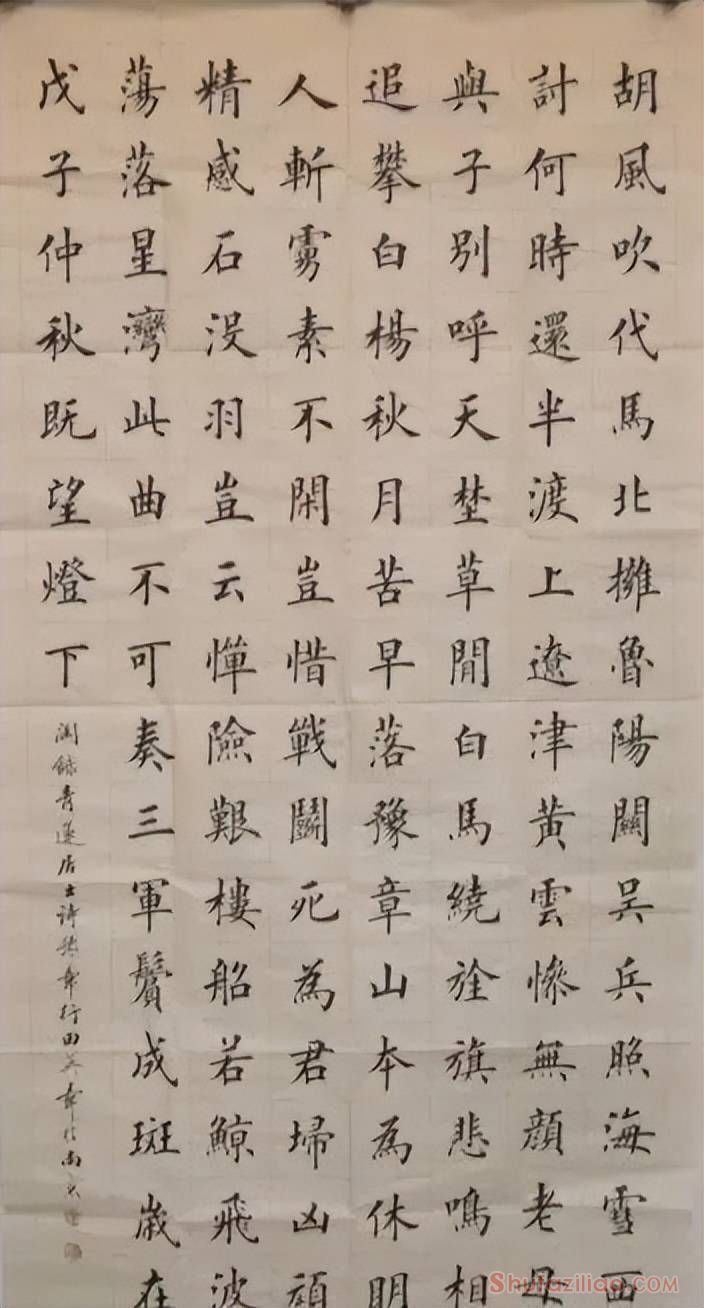 胡風吹代馬北擁魯陽關吳兵照海雪西
討何時還半渡上遼津黃雲慘無顏老母
與子別呼天埜草閒白馬繞旌旗悲鳴相
追攀白楊秋月苦早落豫章山本為休明
人斬虜素不閑豈惜戰鬭死為君埽凶頑
精感石沒羽豈云憚險艱樓船若鯨飛波
蕩落星灣此曲不可奏三軍鬢成斑歲在
戊子仲秋既望燈下
錄青蓮居士詩豫章行田英章
Shufaziliao.com